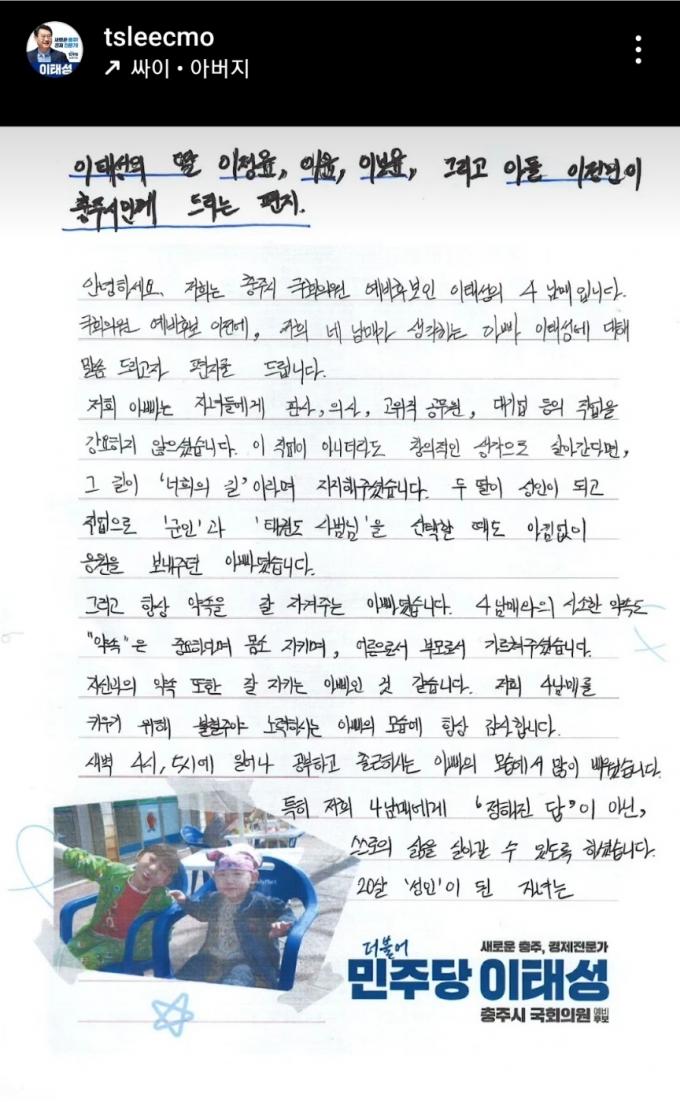 tsleecmo
싸이 • 아버지
새로운 충주!
경제 전문가!
이태성
이태성의 딸 이정윤, 이윤, 이보윤, 그리고 아들 이전변이
충주시민께 드리는 편지.
안녕하세요. 저희는 충주시 국회의원 예비후보인 이태성의 4남매입니다.
국회의원 예비후보 이전에, 저희 네 남매가 생각하는 아빠 이태성에 대해
말씀 드리고자 편지를 드립니다.
저희 아빠는 자녀들에게 판사, 의사, 고위직 공무원, 대기업 등의 직업을
강요하지 않으셨습니다. 이 직업이 아니더라도 창의적인 생각으로 살아간다면,
그 길이 '너희의 길'이라며 지지해주셨습니다. 두 딸이 성인이 되고
직업으로 '군인'과 '태권도 사범님'을 선택할 때도 아낌없이
응원을 보내주던 아빠였습니다.
그리고 항상 약속을 잘 지켜주는 아빠였습니다. 4남매와의 사소한 약속도
"약속"은 중요하다며 몸소 지키며, 어른으로서 부모로서 가르쳐주셨습니다.
자신과의 약속 또한 잘 지키는 아빠인 것 같습니다. 저희 4남매를
키우기 위해 불철주야 노력하시는 아빠의 모습에 항상 감사합니다.
새벽 4시, 5시에 일어나 공부하고 출근하시는 아빠의 모습에서 많이 배웠습니다.
특히 저희 4남매에게 "정해진 답"이 아닌,
스스로의 삶을 살아갈 수 있도록 하셨습니다.
20살 '성인'이 된 자녀는
더불어
민주당 이태성
새로운 충주, 경제전문가
충주시 국회의원 예비후보